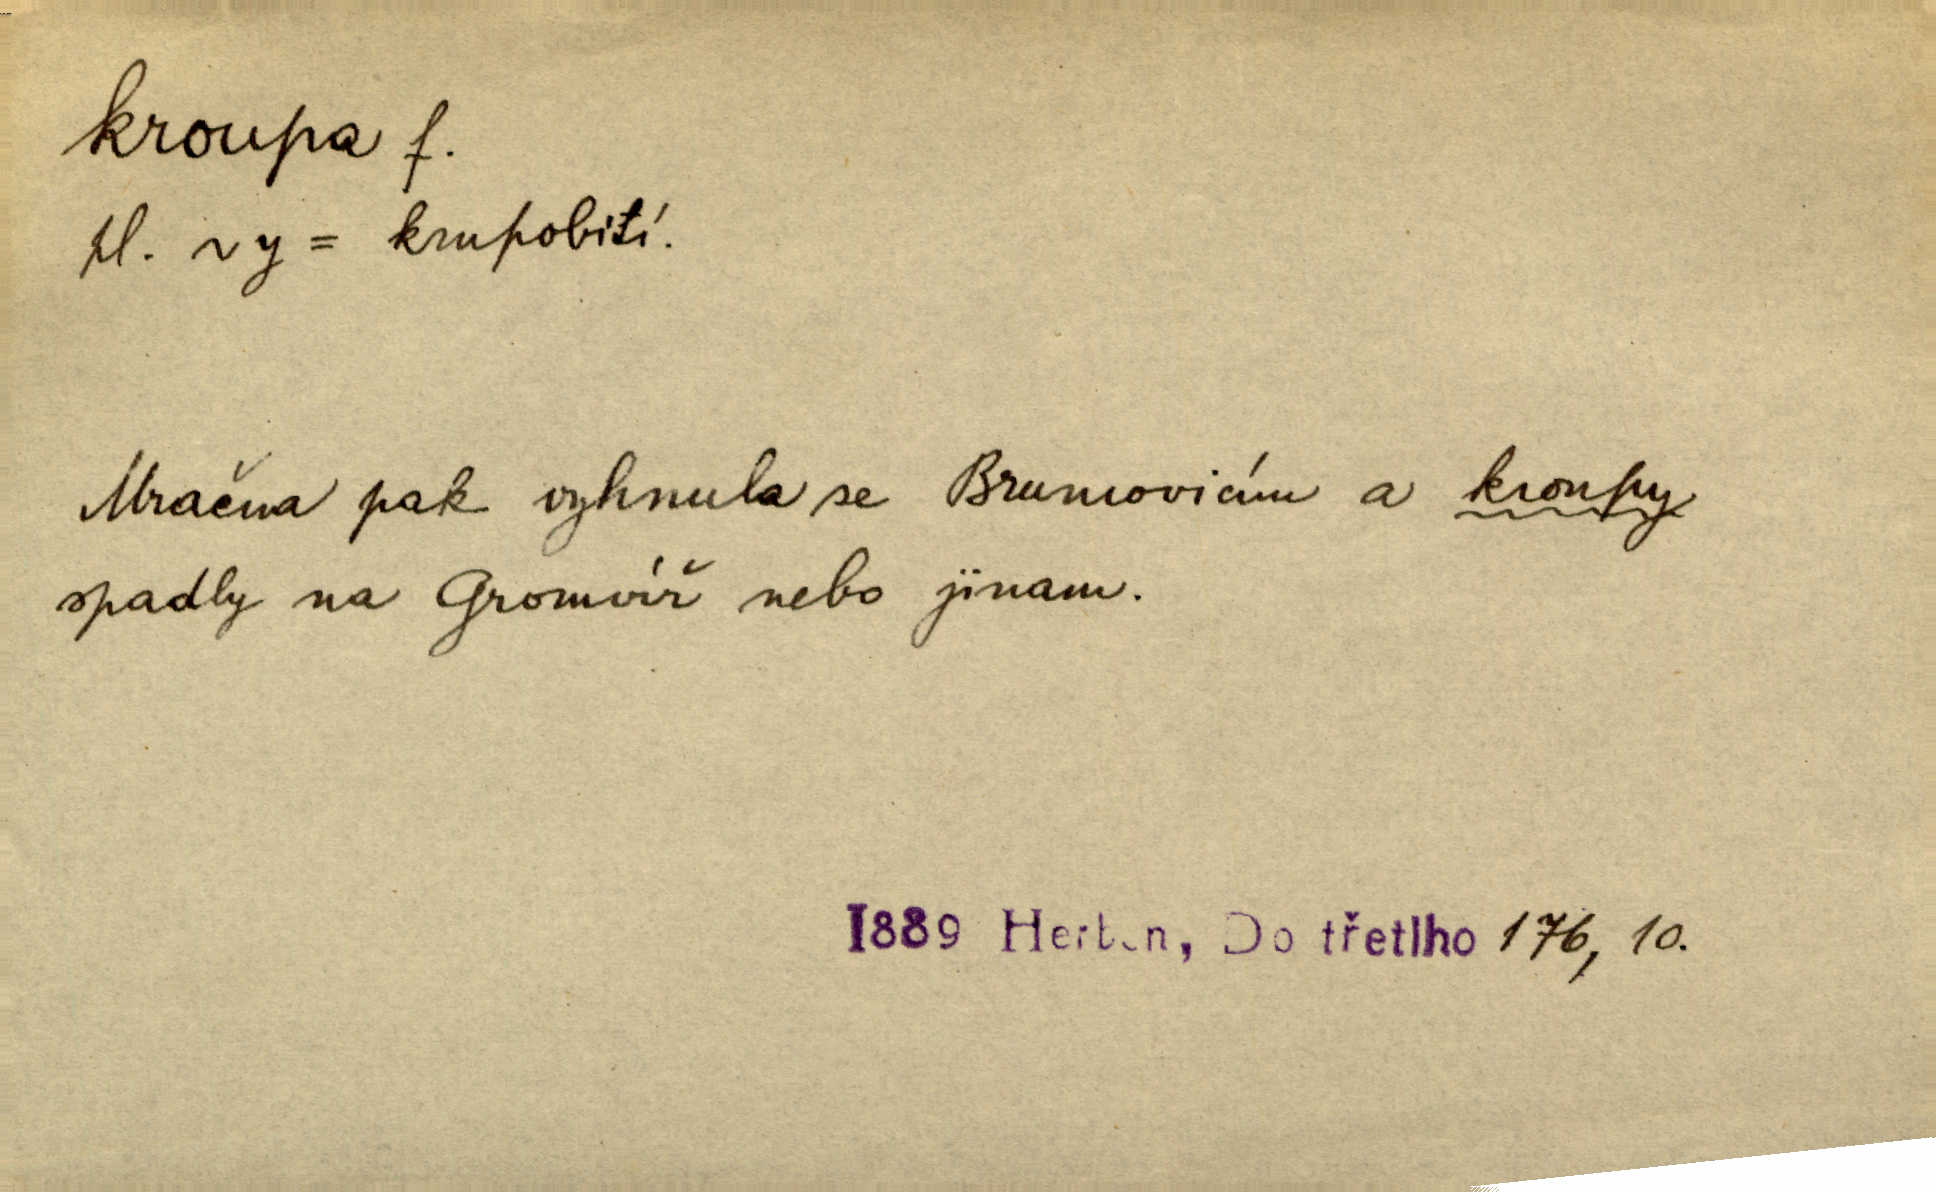 kroupa f.
pl. ~y = krupobití.
Mračna pak vyhnula se Brumovicím a kroupy
spadly na Gromvíř nebo jinam.
1889 Herben, Do třetího 176, 10.